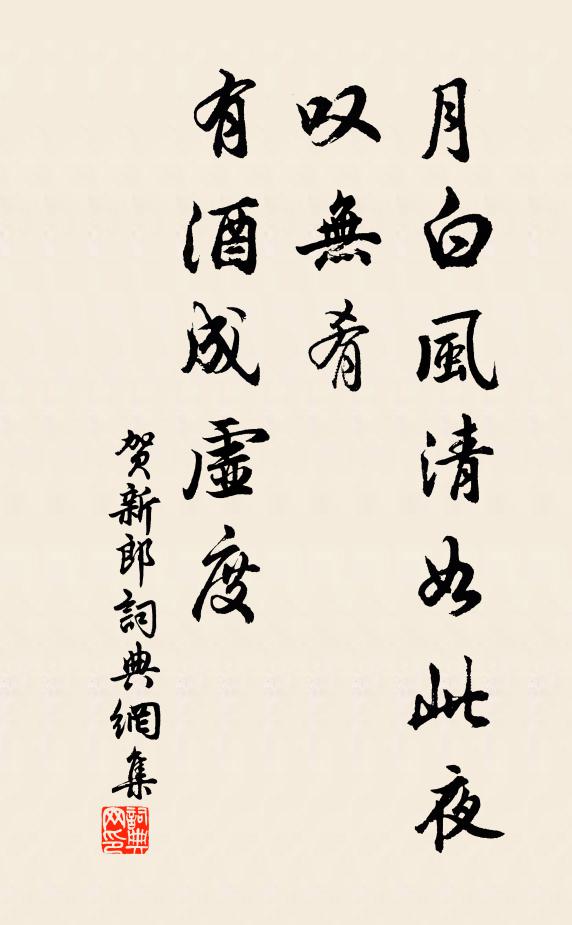 月白風清如此夜
叹無肴
有酒成虛度
贺新郎詞典網集
詞典网印